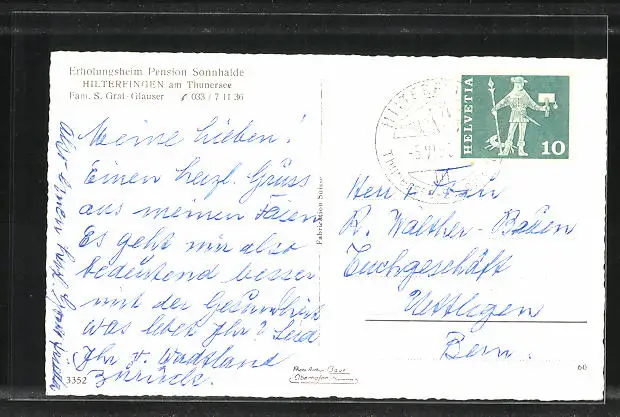 Erholungsheim Pension Sonnhalde
HILTERFINGEN am Thunersee
Fam. S. Graf-Glauser ✆ 033 / 7 11 36
Meine Lieben!
Einen herzl. Gruss
aus meinen Ferien
Es geht mir also
bedeutend besser
mit der Gesundheit
was lebet Ihr? Seid
Ihr v. Waadtland
zurück.
3352
Fabrication Suisse
HELVETIA
10
Herr & Frau
R. Walther-
Tuchgeschäft
Uettligen
Bern.
60